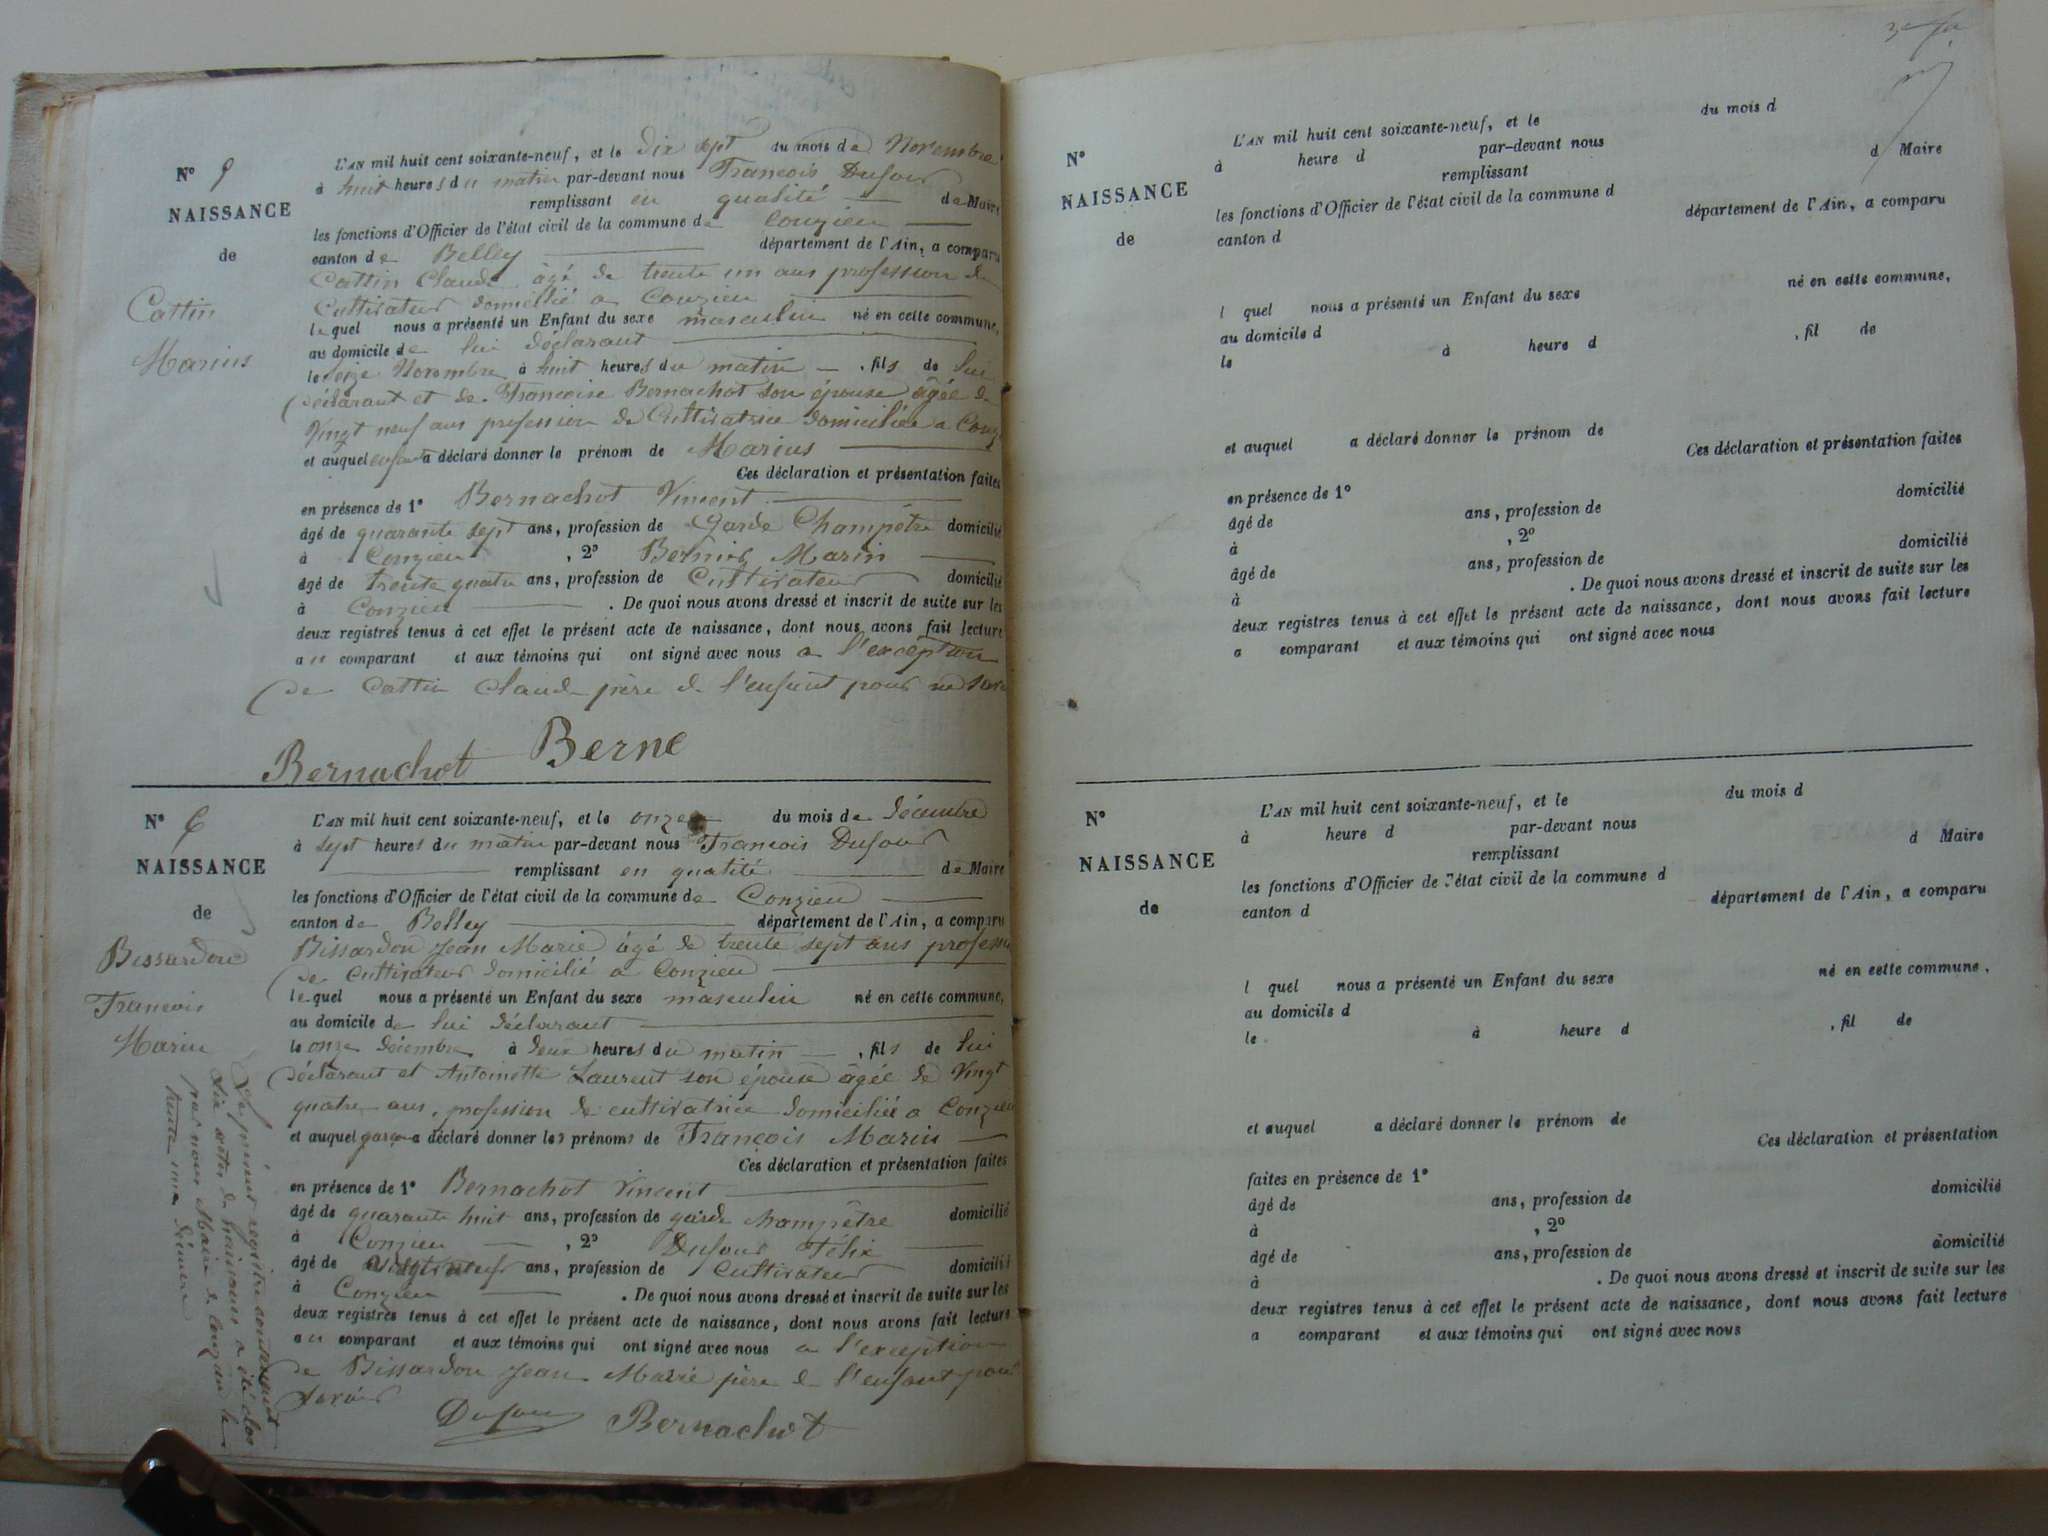 N° 9
NAISSANCE
de
Cattin
Marius
L'AN mil huit cent soixante-neuf, et le dix sept du mois de Novembre
à huit heures du matin par-devant nous Francois Dufour
remplissant en qualité de Maire
les fonctions d'Officier de l'état civil de la commune de Conzieu
canton de Belley département de l'Ain, a comparu
Cattin Claude âgé de trente un ans profession de
Cultivateur domicilié a Conzieu
lequel nous a présenté un Enfant du sexe masculin né en cette commune,
au domicile de lui déclarant
le seize Novembre à huit heures du matin , fils de lui
déclarant et de Francoise Bernachot son épouse âgée de
Vingt neuf ans profession de Cultivatrice domiciliée a Conz
et auquel enfant a déclaré donner le prénom de Marius
Ces déclaration et présentation faites
en présence de 1° Bernachot Vincent
âgé de quarante sept ans, profession de Garde Champêtre domicilié
à Conzieu , 2° Marin
âgé de trente quatre ans, profession de Cultivateur domicilié
à Conzieu . De quoi nous avons dressé et inscrit de suite sur les
deux registres tenus à cet effet le présent acte de naissance, dont nous avons fait lecture
au comparant et aux témoins qui ont signé avec nous a l'exception
de Cattin Claude père de l'enfant pour ne
Bernachot Berne
N° 6
NAISSANCE
de
Bissardon
Francois
Marin
L'AN mil huit cent soixante-neuf, et le onze du mois de décembre
à sept heures du matin par-devant nous Francois Dufour
remplissant en qualité de Maire
les fonctions d'Officier de l'état civil de la commune de Conzieu
canton de Belley département de l'Ain, a comparu
Bissardon Jean Marie âgé de trente sept ans profession
de Cultivateur domicilié a Conzieu
lequel nous a présenté un Enfant du sexe masculin né en cette commune,
au domicile de lui déclarant
le onze décembre à deux heures du matin , fils de lui
déclarant et Antoinette Laurent son épouse âgée de Vingt
quatre ans, profession de cultivatrice domiciliée a Conzieu
et auquel garçon a déclaré donner les prénoms de François Marin
Ces déclaration et présentation faites
en présence de 1° Bernachot Vincent
âgé de quarante huit ans, profession de garde champêtre domicilié
à Conzieu , 2° Dufour Félix
âgé de ans, profession de Cultivateur domicilié
à Conzieu . De quoi nous avons dressé et inscrit de suite sur les
deux registres tenus à cet effet le présent acte de naissance, dont nous avons fait lecture
au comparant et aux témoins qui ont signé avec nous a l'exception
de Bissardon Jean Marie père de l'enfant pour
savoir
Dufour Bernachot
Le présent registre contenant
six actes de naissances a été clos
par nous Maire de Conzieu le
trente un décembre
L'AN mil huit cent soixante-neuf, et le du mois d
N°
NAISSANCE
de
à heure d par-devant nous
remplissant d Maire
les fonctions d'Officier de l'état civil de la commune d
canton d département de l'Ain, a comparu
l quel nous a présenté un Enfant du sexe né en cette commune,
au domicile d
le à heure d , fil de
et auquel a déclaré donner le prénom de
Ces déclaration et présentation faites
en présence de 1°
âgé de ans, profession de domicilié
à , 2°
âgé de ans, profession de domicilié
à . De quoi nous avons dressé et inscrit de suite sur les
deux registres tenus à cet effet le présent acte de naissance, dont nous avons fait lecture
a comparant et aux témoins qui ont signé avec nous
N°
NAISSANCE
de
L'AN mil huit cent soixante-neuf, et le du mois d
à heure d par-devant nous
remplissant d Maire
les fonctions d'Officier de l'état civil de la commune d
canton d département de l'Ain, a comparu
l quel nous a présenté un Enfant du sexe né en cette commune,
au domicile d
le à heure d , fil de
et auquel a déclaré donner le prénom de
Ces déclaration et présentation
faites en présence de 1°
âgé de ans, profession de domicilié
à , 2°
âgé de ans, profession de domicilié
à . De quoi nous avons dressé et inscrit de suite sur les
deux registres tenus à cet effet le présent acte de naissance, dont nous avons fait lecture
a comparant et aux témoins qui ont signé avec nous